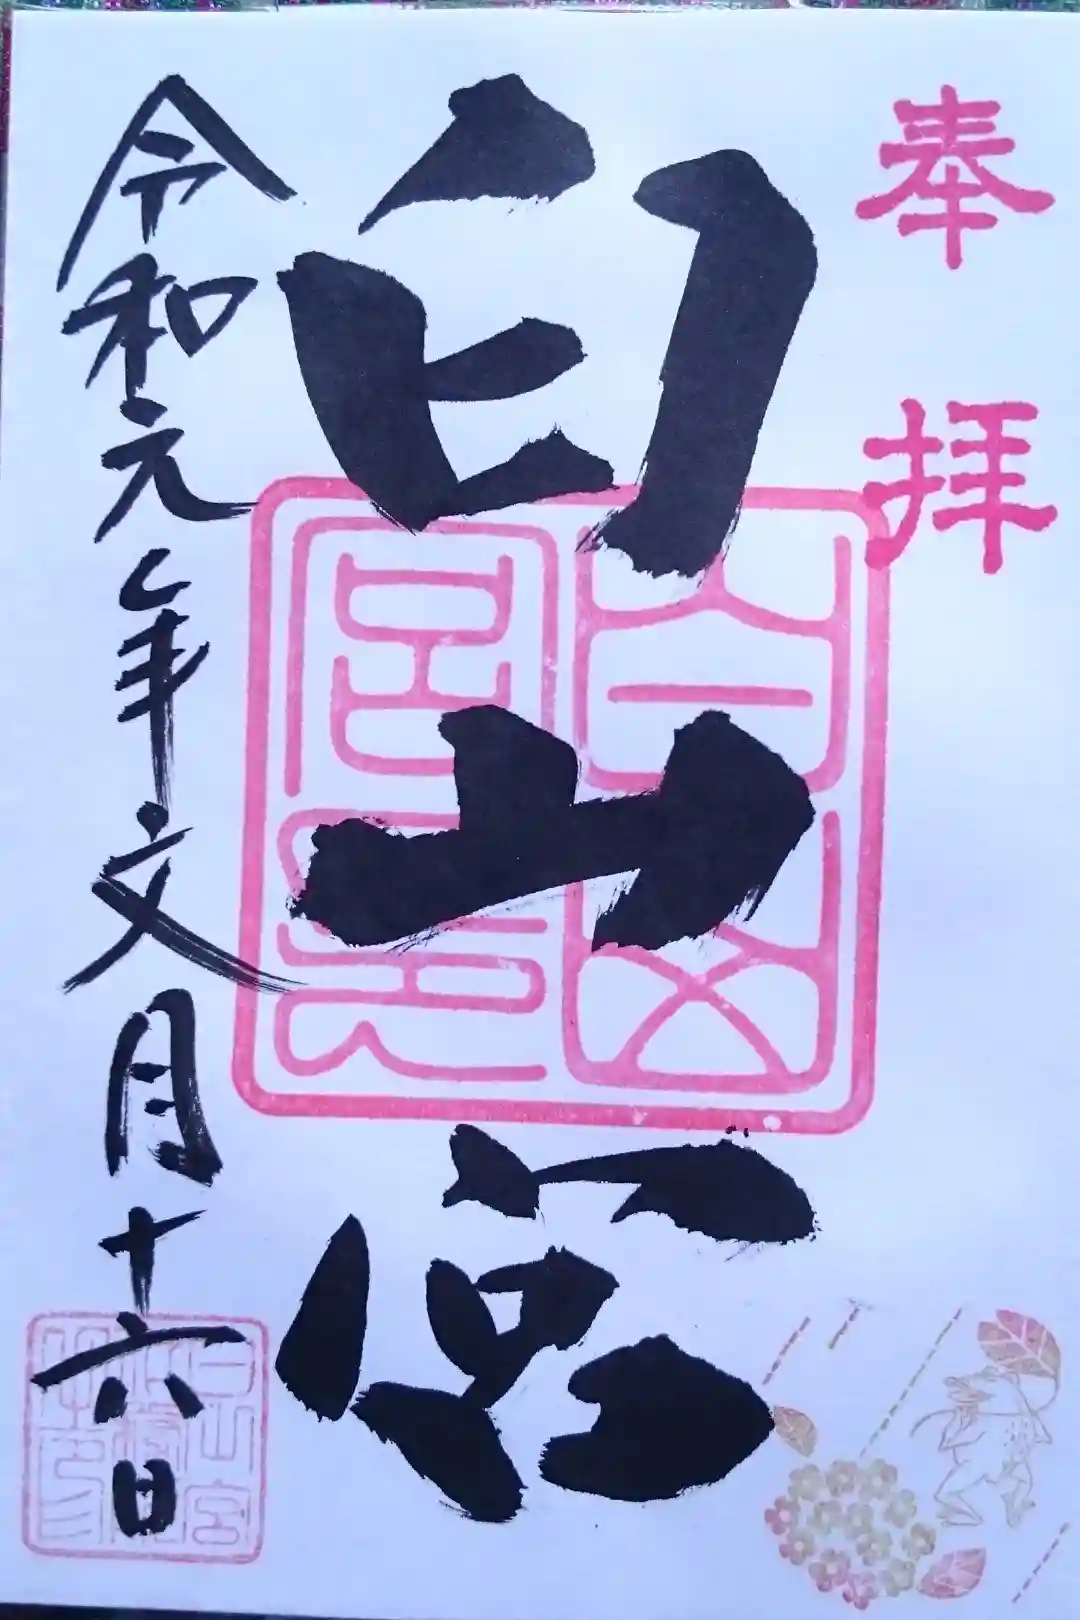 奉拝
白山宮
令和元年文月十六日
白山宮印